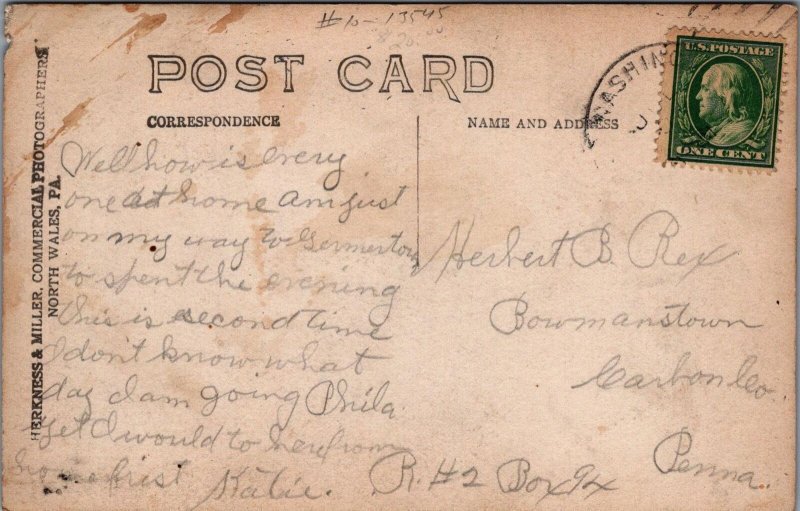 #10-13545
$20.00
POST CARD
CORRESPONDENCE
NAME AND ADDRESS
WASHING
U.S. POSTAGE
ONE CENT
HERKNESS & MILLER, COMMERCIAL PHOTOGRAPHERS
NORTH WALES, PA.
Well how is every
one at home am just
on my way to Germertown
to spent the evening
this is second time
I don't know what
day I am going Phila
yet I would to hear from
home frist Katie.
Herbert B. Rex
Bowmanstown
Carbon Co.
Penna.
R. #2 Box 94